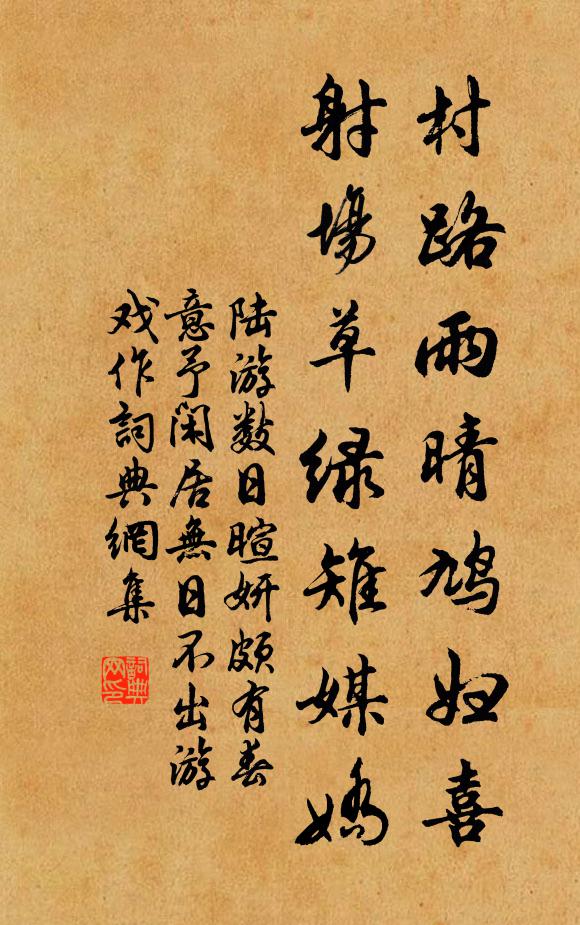 村路雨晴鳩妇喜
射場草绿雉媒嬌
陆游数日暄妍颇有春
意予闲居無日不出游
戏作詞典網集
詞典网印